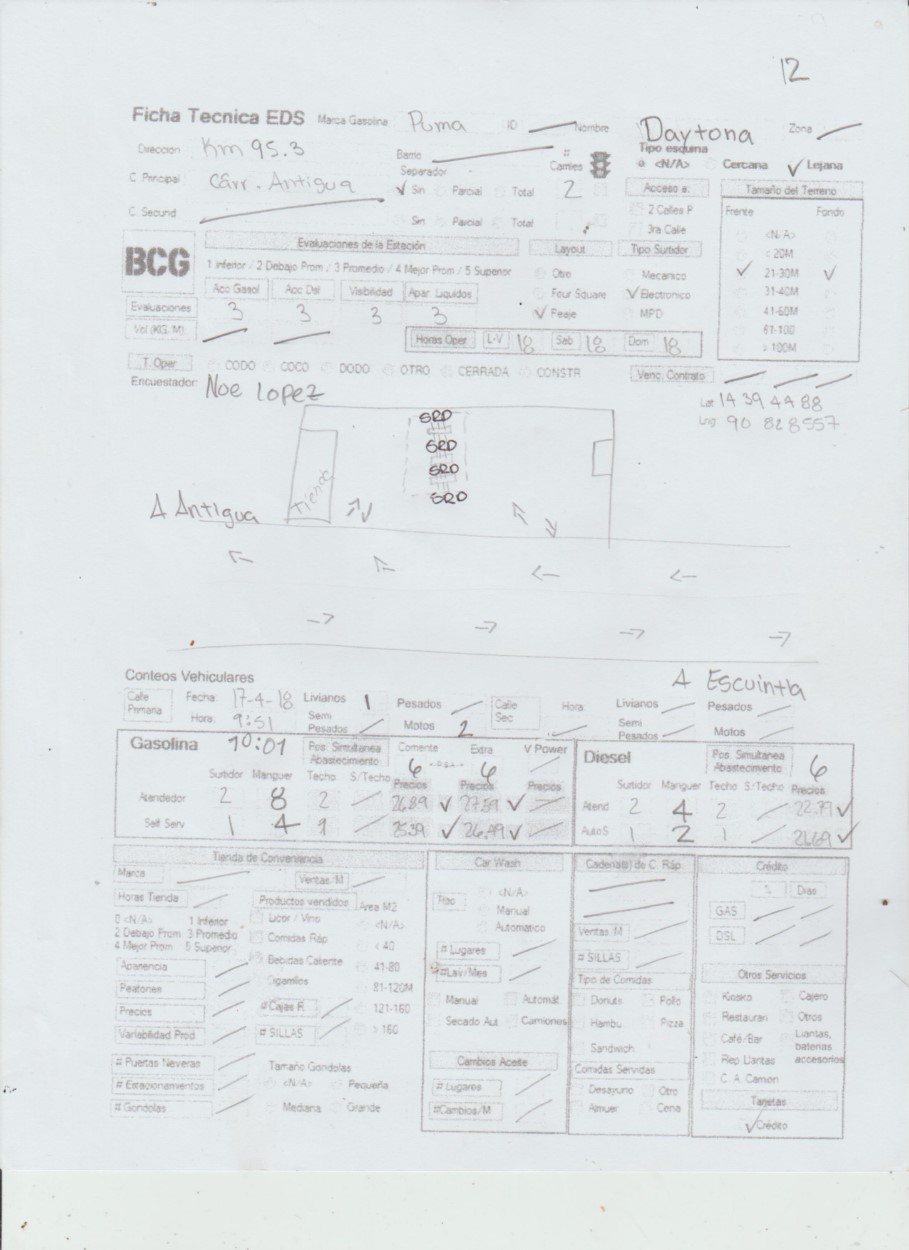 12
Ficha Tecnica EDS Marca Gasolina Puma ID Nombre Daytona Zona
Direccion Km 95.3 Barrio # Carriles Tipo esquina <N/A> Cercana Lejana
C Principal Carr. Antigua Separador Sin Parcial Total 2 Acceso a: Tamaño del Terreno
C. Secund Sin Parcial Total 2 Calles P Frente Fondo
3ra Calle <N/A>
BCG Evaluaciones de la Estación Layout Tipo Surtidor < 20M
1 Inferior / 2 Debajo Prom / 3 Promedio / 4 Mejor Prom / 5 Superior Otro Mecanico 21-30M
Acc Gasol Acc Dsl Visibilidad Apar Liquidos Four Square Electronico 31-40M
Evaluaciones 3 3 3 3 Peaje MPD 41-60M
Vol (KG. M) Horas Oper L-V 18 Sab 18 Dom 18 61-100
> 100M
T. Oper CODO COCO DODO OTRO CERRADA CONSTR Venc. Contrato
Encuestador: Noe Lopez Lat 14 39 44 88
Lng 90 828557
SRD
SRD
SRD
SRD
Tienda
A Antigua
A Escuintla
Conteos Vehiculares
Calle Primaria Fecha: 17-4-18 Livianos 1 Pesados Calle Sec Hora: Livianos Pesados
Hora: 9:51 Semi Pesados Motos 2 Semi Pesados Motos
Gasolina 10:01 Pos. Simultanea Abastecimiento Corriente 6 Extra 6 V Power Diesel Pos. Simultanea Abastecimiento 6
Surtidor Manguer Techo S/Techo Precios Precios Precios Surtidor Manguer Techo S/Techo Precios
Atendedor 2 8 2 26.89 27.59 Atend 2 4 2 22.79
Self Serv 1 4 1 25.39 26.49 AutoS 1 2 1 21.69
Tienda de Conveniencia Car Wash Cadena(s) de C. Ráp Crédito
Marca Ventas/M <N/A> % Dias
Horas Tienda Productos vendidos Area M2 Tipo Manual GAS
0 <N/A> 1 Inferior Licor / Vino <N/A> Automatico Ventas/M DSL
2 Debajo Prom 3 Promedio Comidas Ráp < 40 # Lugares # SILLAS
4 Mejor Prom 5 Superior Bebidas Caliente 41-80 #Lav/Mes Tipo de Comidas Otros Servicios
Apariencia Cigarrillos 81-120M Manual Automát. Donuts Pollo Kiosko Cajero
Peatones # Cajas R 121-160 Secado Aut Camiones Hambu Pizza Restauran Otros
Precios # SILLAS > 160 Sandwich Café/Bar Llantas, baterias accesorios
Variabilidad Prod. Rep Llantas
# Puertas Neveras Tamaño Gondolas Cambios Aceite Comidas Servidas C. A. Camion
# Estacionamientos <N/A> Pequeña # Lugares Desayuno Otro Tarjetas
# Gondolas Mediana Grande #Cambios/M Almuer Cena Crédito